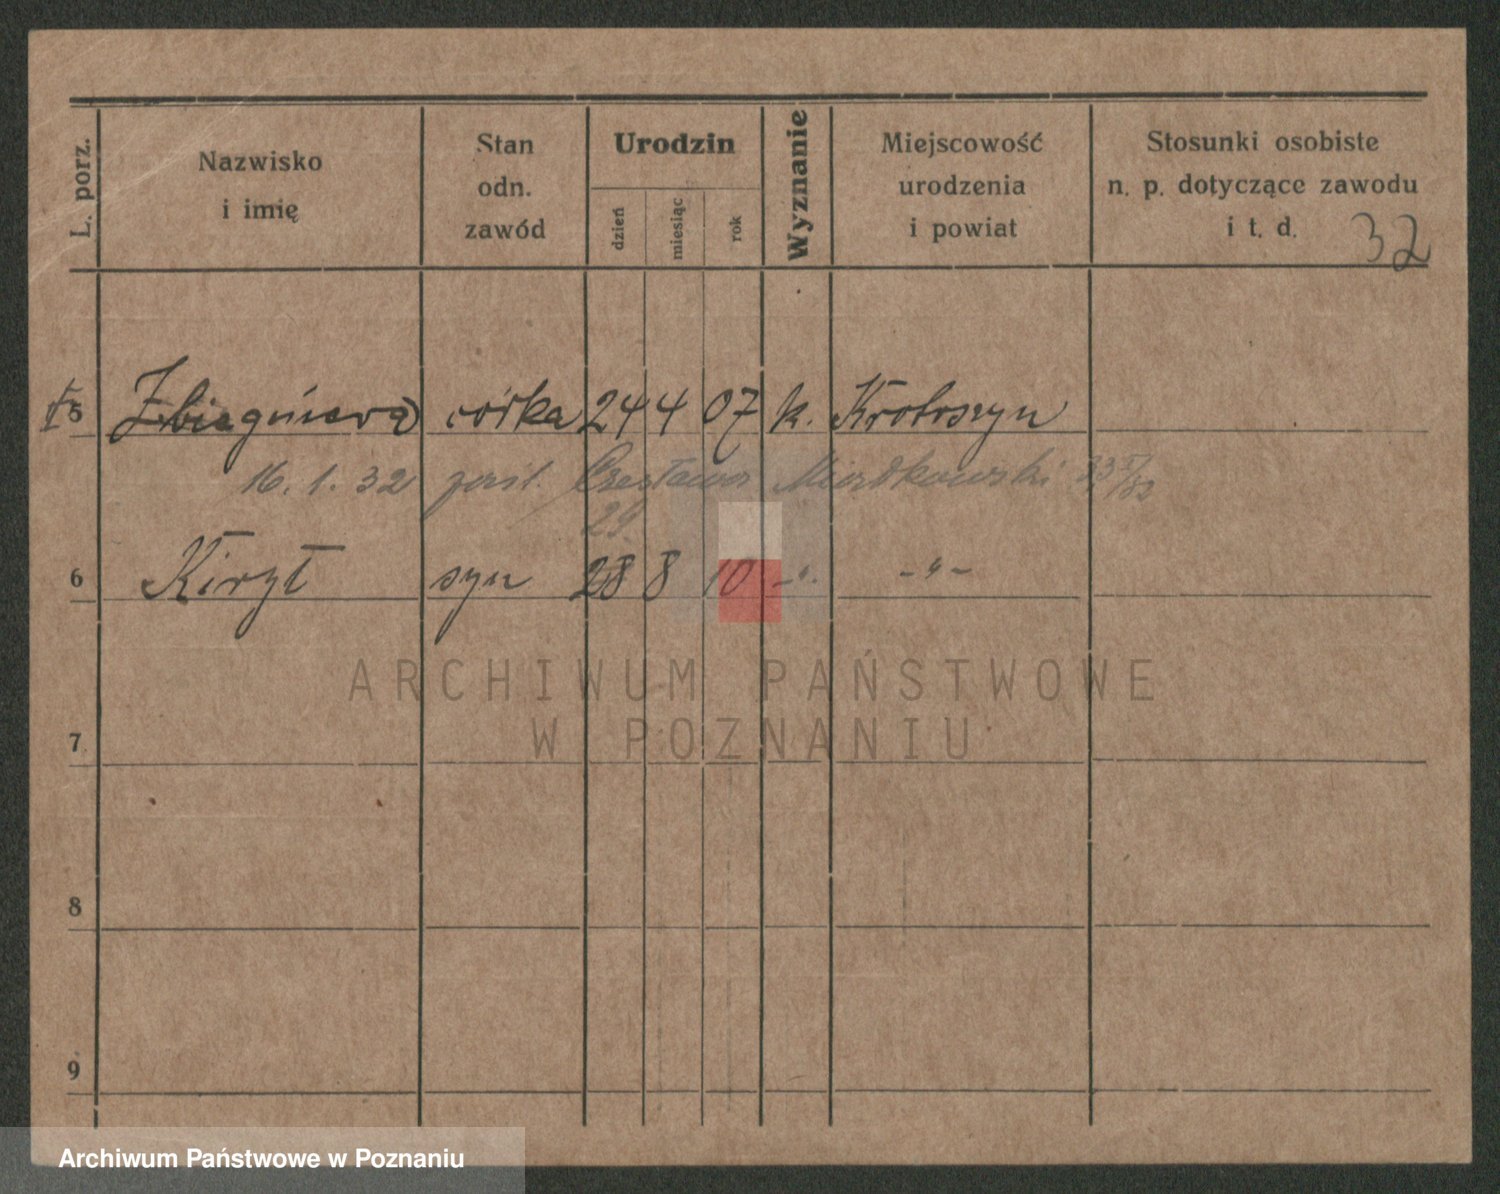 L. porz. Nazwisko i imię Stan odn. zawód Urodzin dzień miesiąc rok Wyznanie Miejscowość urodzenia i powiat Stosunki osobiste n. p. dotyczące zawodu i t. d. 32
5 córka 24 4 07 k. Krotoszyn
16. 1. 32 Czesława
29.
6 syn 28 8 10 -"- -"-
ARCHIWUM PAŃSTWOWE
W POZNANIU
7
8
9
Archiwum Państwowe w Poznaniu